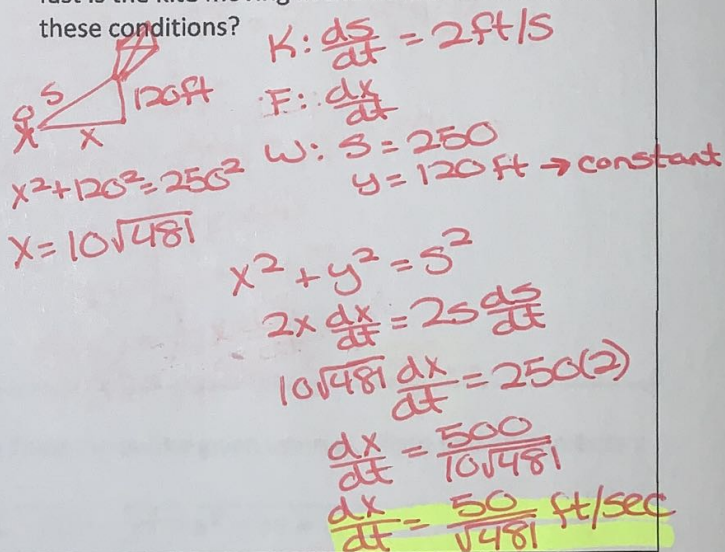 these conditions?
K: ds/dt = 2ft/s
S
120ft
x
F: dx/dt
W: S = 250
y = 120 ft → constant
x²+120²=250²
x = 10√481
x² + y² = s²
2x dx/dt = 2s ds/dt
10√481 dx/dt = 250(2)
dx/dt = 500/10√481
dx/dt = 50/√481 ft/sec